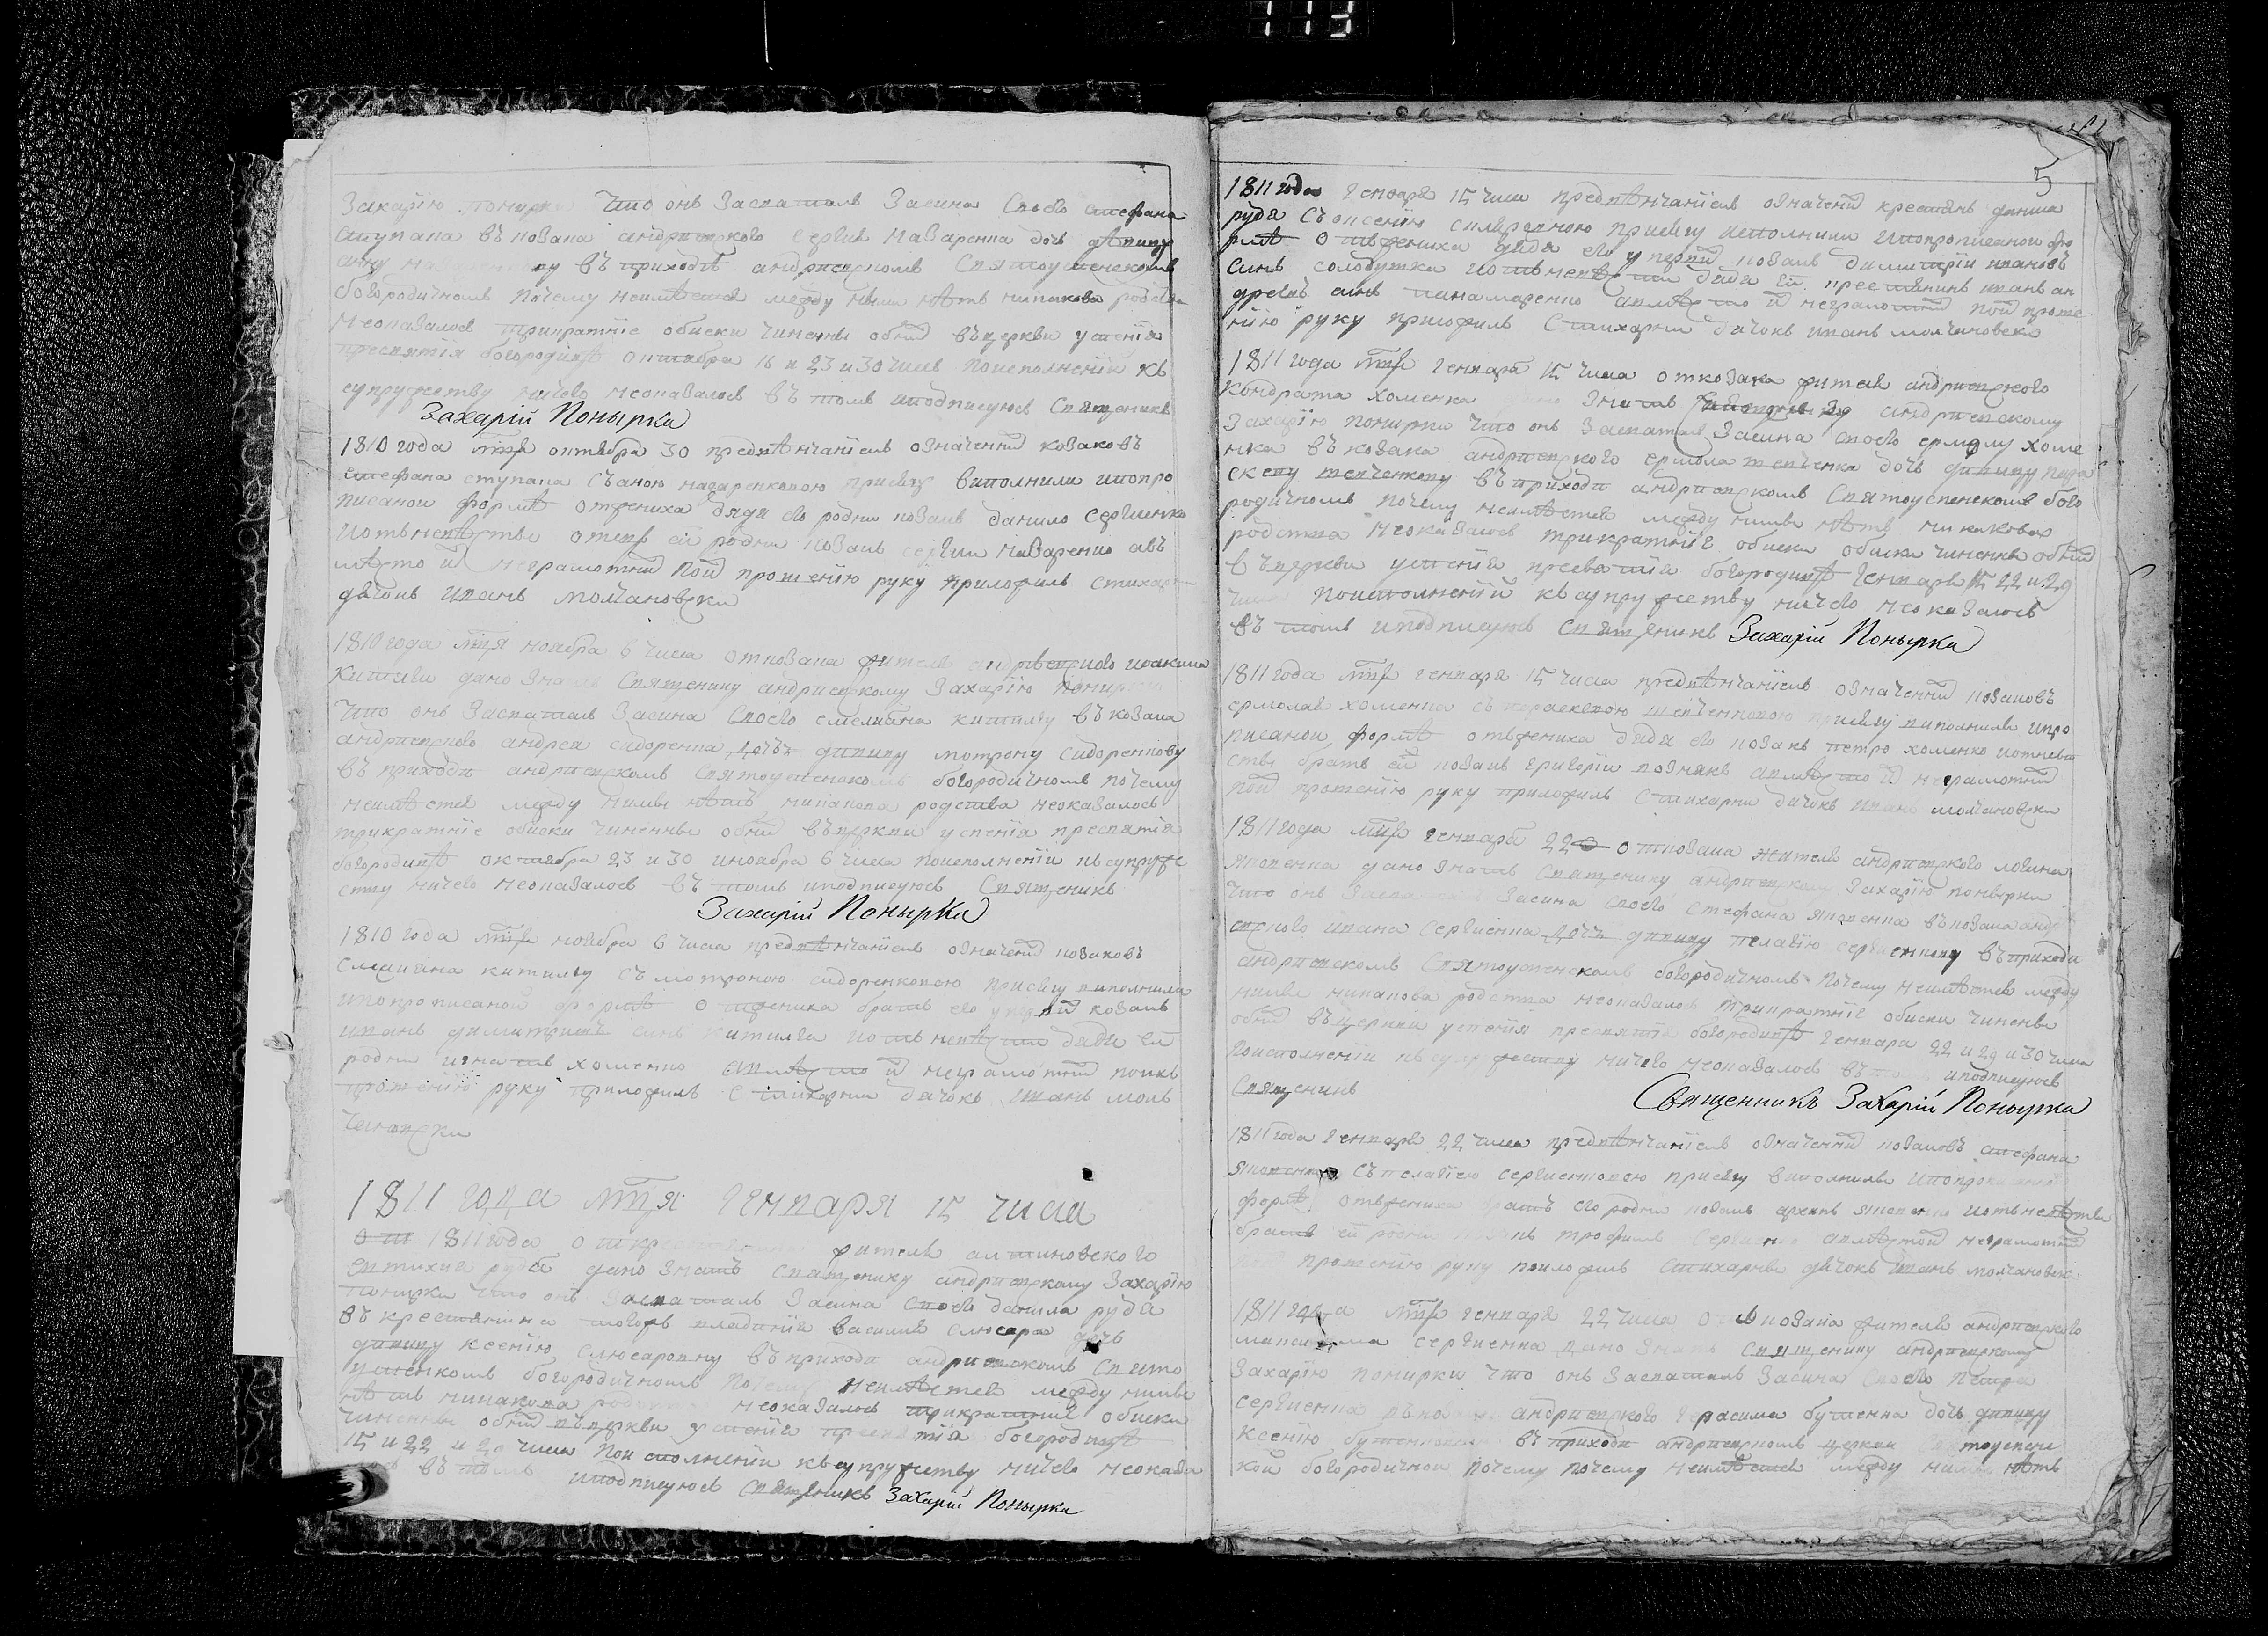 113
Захарію понирки что онъ Засваталъ Засина Своего стефана
ступана въ козака андриевского Сергия Назаренка дочъ дѣвицу
анну въ приходѣ андриевскомъ Святоуспенскомъ
богородичномъ Почему неимѣется между ними нѣтъ никакова родства
Неоказалось трикратніе обиски чиненны обній въцеркви успенія
пресвятія богородицѣ октабра 16 и 23 и 30 числ Поисполненій къ
супружетву ничего неоказалось въ томъ иподписуюсь Священикъ
Захарій Понырка
1810 года мця октабра 30 предвѣнчаніемъ означеній козаковъ
стефана ступана съаною назаренковою присягу виполнили ипопро
писаной формѣ отжениха дядя его родни козакъ данило Сергиенко
иотъневѣстви отецъ ей родни козакъ сергии назаренко авъ
мѣсто их неграмотній Пой прошенію руку приложилъ стихарни
дячокъ иванъ молчановски
1810 года мця ноабра 6 числа откозака жителя андриевского иоакима
Китили дано знать Священику андриевскому Захарію понирки
Что онъ Засваталъ Засина Своего емелияна китилу въ козака
андриевского андрея сидоренка дочъ дивицу мотрону сидоренкову
въ приходи андриевскомъ Святоуспенскомъ богородичномъ почему
неимѣется между ними нѣтъ никакова родства неоказалось
трикратніе обиски чиненны обній въцеркви успенія пресвятія
богородицѣ октабра 23 и 30 иноабра 6 числа поисполненіи къ супруже
ству ничего неоказалось въ томъ иподписуюсь Священикъ
Захарій Понырка
1810 года мця ноабра 6 числа предвѣнчаніемъ означеній козаковъ
емелияна китилу съ мотроною сидоренковою присягу виполнили
ипопрописаной формѣ отжениха братъ его козакъ
иванъ димитриевъ синъ китила иотъневѣстви дядя ей
родни игнатъ хоменко авмѣсто й неграмотній поихъ
прошенію руку приложилъ Стихарни дячокъ иванъ мол
чановски
1811 года мця Генваря 15 числа
От 1811 года жителя алтиновского
Евтихия руда дано знать Священику андриевскому Захарію
понирки что онъ Засваталъ Засина Своего данила руда
въ крестянина тогожъ владинія василия слюсара дочъ
дивицу ксенію слюсаровну въ приходи андриевскомъ Свято
успенкомъ богородичномъ Почему неимѣется между ними
нѣтъ никакова родства неоказалось трикратніе обиски
чиненны обній въцеркви успенія пресвятія богородицѣ
15 и 22 и 29 числа Поисполненіи къ супружетву ничего неоказа
въ томъ иподписуюсь священикъ Захарій Понырка
5
1811 года Генваря 15 числ предвѣнчаніемъ означеній крестянъ данила
руда Съ ксенію слюсаровною присягу исполнили ипопрописаной фо
рмѣ Отжениха дядя его козакъ димитріи ивановъ
синъ солодутка иотъневѣстви дядя ей крестянинъ иванъ ан
дреевъ синъ пинамаренко авмѣсто й неграмотній пой проше
нію руку приложилъ Стихарни дячокъ иванъ молчановски
1811 года мця Генвара 15 числа откозака жителя андриевского
Кондрата Хоменка знать андриевскому
Захарію понирки что онъ Засваталъ Засина своего ермолу хоме
нка въ козака андриевского ермола шевченка дочъ дивицу пара
скеву шевченкову въ приходи андриевскомъ Святоуспенскомъ бого
родичномъ Почему неимѣется между ними нѣтъ никакова
родства неоказалось трикратніе обиски обиски чиненны обній
въцеркви успенія пресвятія богородицѣ Генваря 15 22 и 29
числ Поисполненій къ супружетву ничего неоказалось
въ томъ иподписуюсь Священикъ Захарій Понырка
1811 года мця генваря 15 числа предвѣнчаніемъ означеній козаковъ
ермолая хоменка съ параскевою шевченковою присягу виполнили ипро
писаной формѣ отжениха дядя его козакъ петро хоменко иотневѣ
стви братъ ей козакъ григорій познякъ авмѣсто й неграмотній
пой прошенію руку приложилъ Стихарни дячокъ иванъ молчановски
1811 года мця генвара 22 откозака жителя андриевского логина
япопенка дано знать Священику андриевскому Захарію понырки
что онъ Засваталъ Засина Своего Стефана япопенка въ козака андр
евского ивана Сергиенка дочъ дивицу пелагію сергиенкову въ приходи
андриевскомъ Святоуспенскомъ богородичномъ Почему неимѣется между
ними никакова родства неоказалось трикратніе обиски чиненны
обній въцеркви успенія пресвятія богородицѣ Генвара 22 и 29 и 30 числа
Поисполненіи къ супружеству ничего неоказалось въ томъ иподписуюсь
Священикъ
Священникъ Захарій Понырка
1811 года Генваря 22 числа предвѣнчаніемъ означеній козаковъ стефана
япопенка Съ пелагіею сергиенковою присягу виполнили ипопрописаной
формѣ отжениха братъ его родни козакъ архипъ япопенко иотъневѣстви
братъ ей родни козакъ трофимъ Сергиенко авмѣстой неграмотній
прошенію руку приложилъ стихарни дячокъ иванъ молчановск
1811 года мця генваря 22 числа откозака жителя андриевского
максима сергиенка дано знать Священику андриевскому
Захарію понирки что онъ Засваталъ Засина Своего Петра
сергиенка въ козака андриевского герасима бутенка дочъ дивицу
ксенію бутенкову въ приходи андриевскомъ церкви Святоуспенс
кой богородичной Почему почему неимѣется между ними нѣтъ